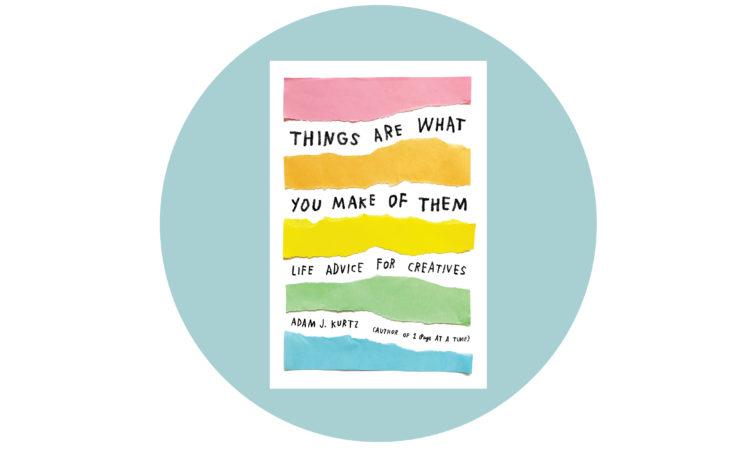 THINGS ARE WHAT
YOU MAKE OF THEM
LIFE ADVICE FOR CREATIVES
ADAM J. KURTZ (AUTHOR OF 1 Page AT A TIME)